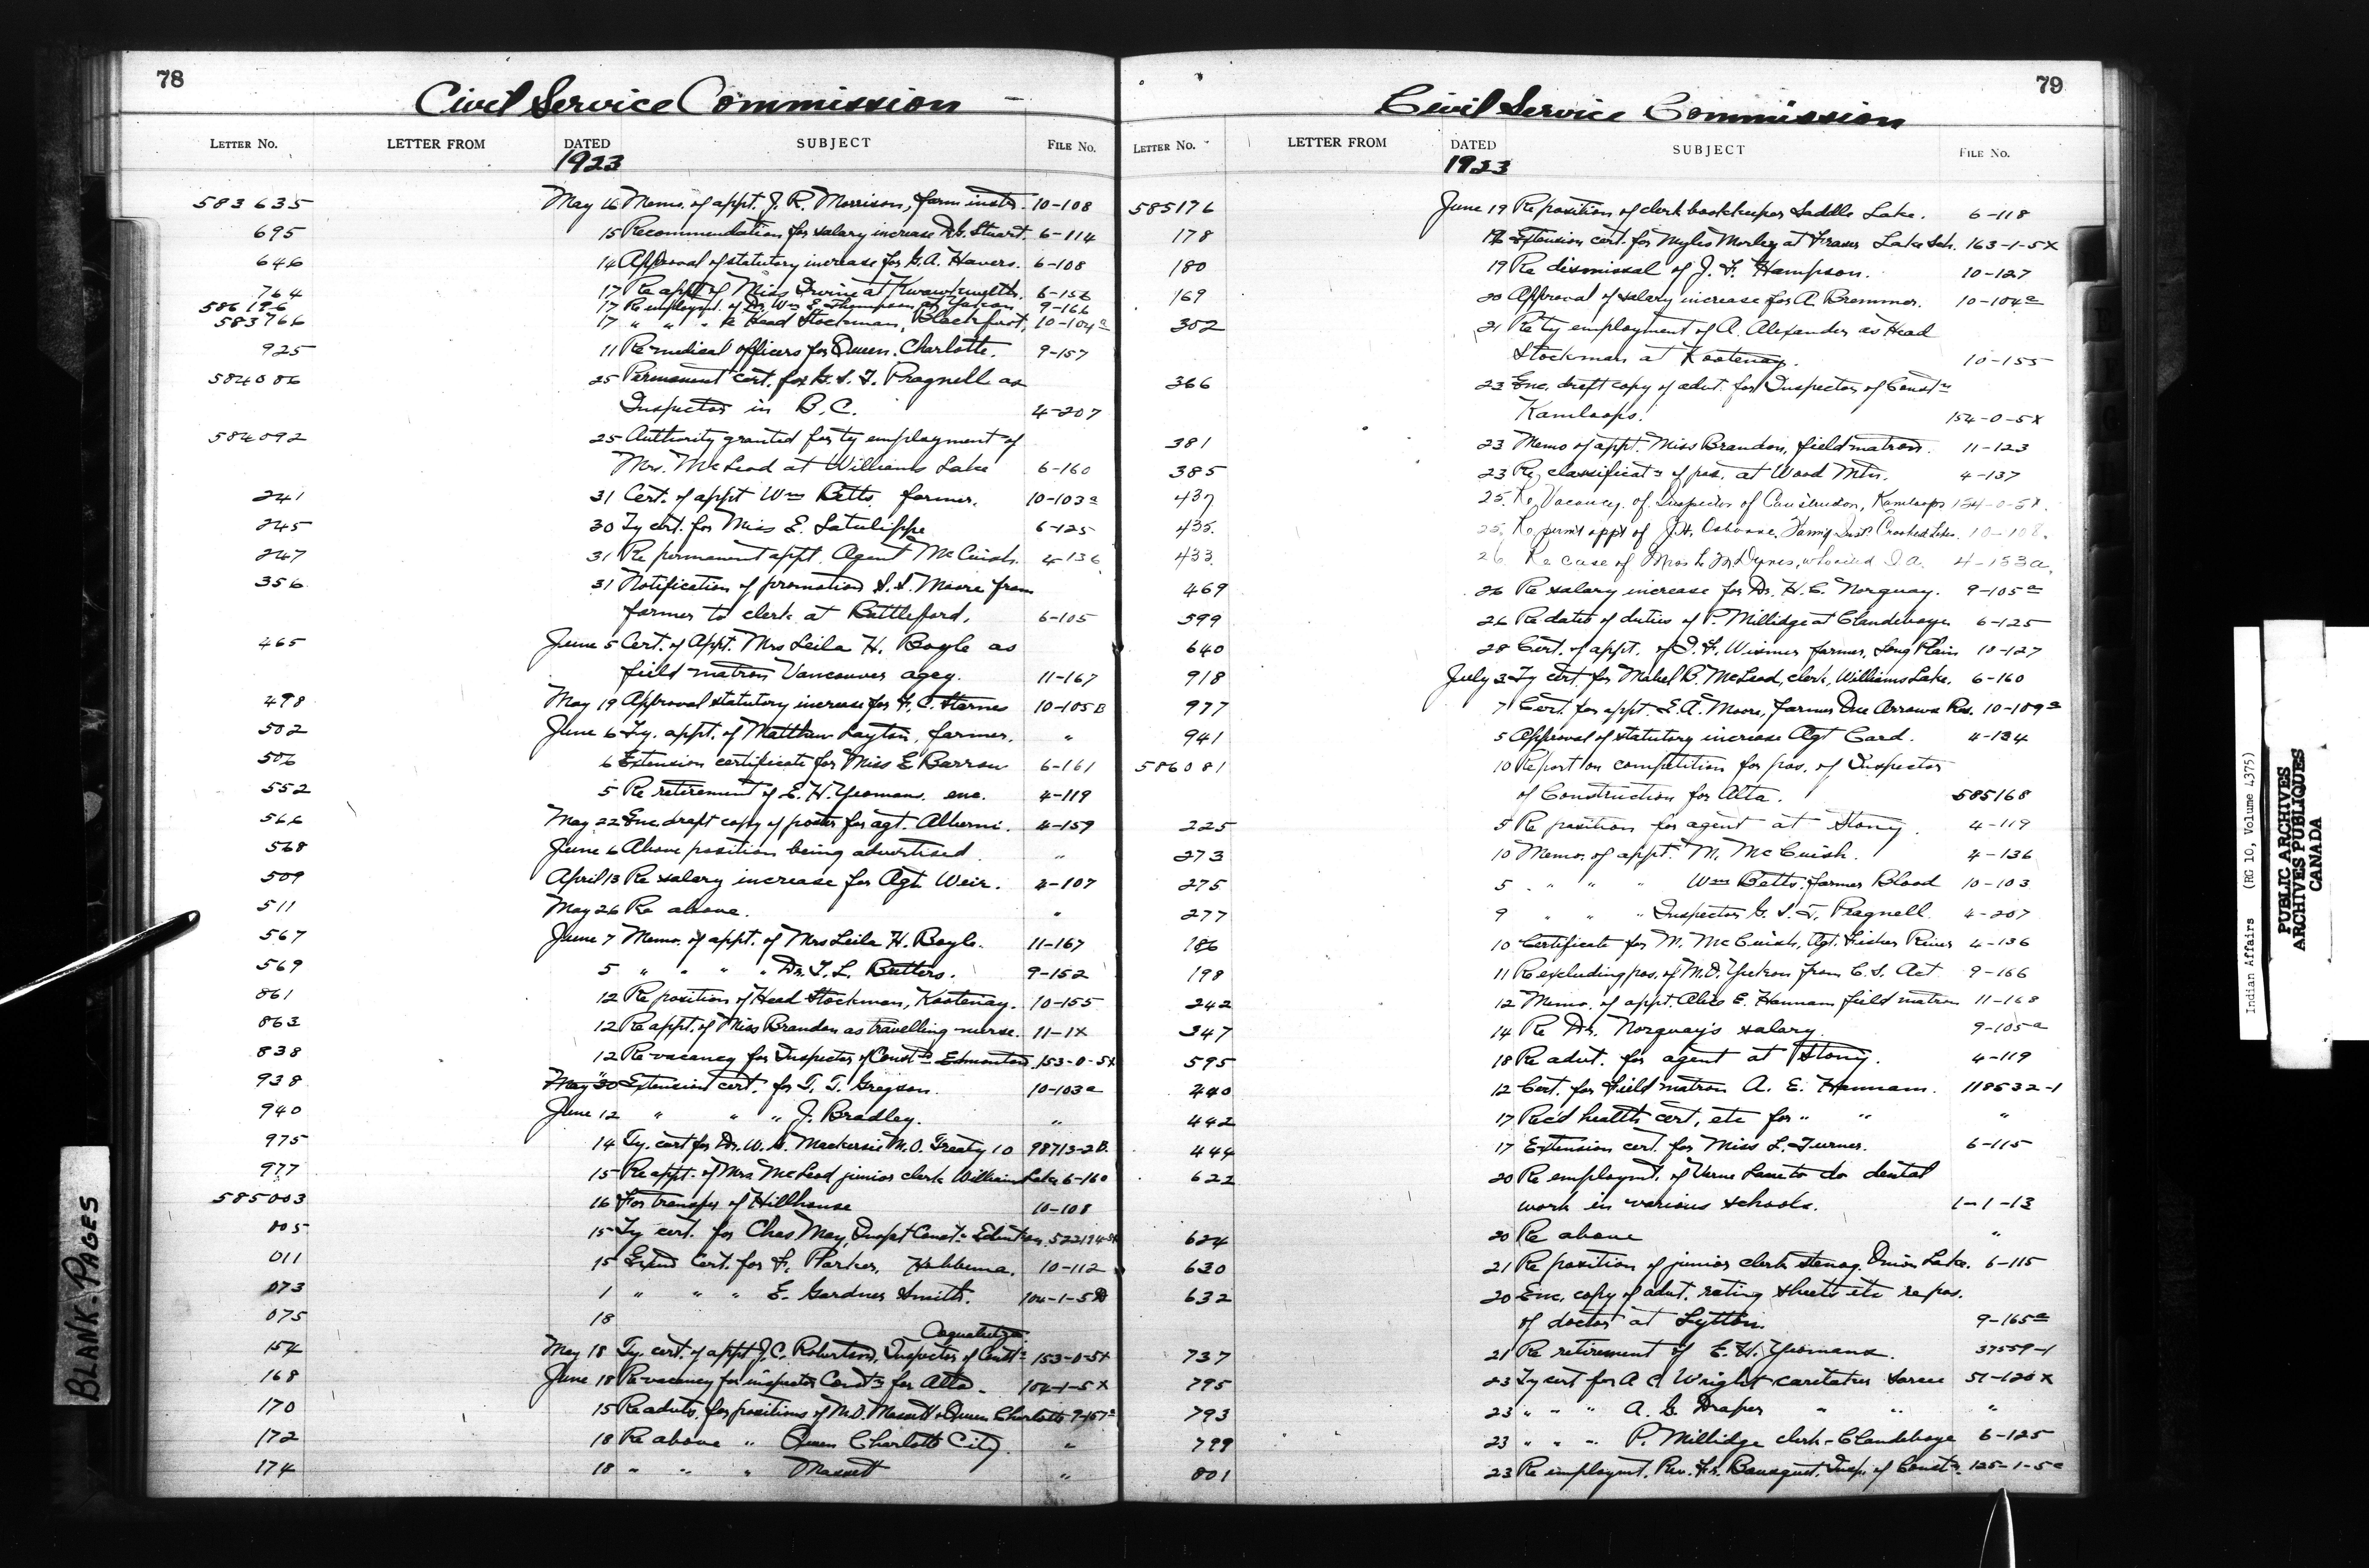 78
Civil Service Commission
LETTER NO. LETTER FROM DATED SUBJECT FILE NO.
1923
583635 May 16 Memo. of appt. J. R. Morrison, farm instr. 10-108
695 15 Recommendation for salary increase Dr. Stuart. 6-114
646 14 Approval of statutory increase for G. A. Havers. 6-108
764 17 Re appt. of Miss Irvine at 6-156
586196 17 Re employmt. of Dr. Wm. E. Thompson at Yukon 9-166
583766 17 " " " Head Stockman, Blackfoot, 10-104a
925 11 Re medical officers for Queen Charlotte. 9-157
584086 25 Permanent cert. for G. S. T. Pragnell as
Inspector in B.C. 4-207
584092 25 Authority granted for ty employment of
Mrs. McLeod at Williams Lake 6-160
241 31 Cert. of appt Wm Betts farmer. 10-103a
245 30 Ty cert. for Miss E. Latulippe 6-125
247 31 Re permanent appt. Agent McCuish. 4-136
356 31 Notification of promotion S. S. Moore from
farmer to clerk at Battleford. 6-105
465 June 5 Cert. of Appt. Mrs Leila H. Bogle as
field matron Vancouver agcy. 11-167
498 May 19 Approval statutory increase for F. C. Starnes 10-105B
502 June 6 Ty. appt. of Matthew Layton, farmer. "
506 6 Extension certificate for Miss E Barrow 6-161
552 5 Re retirement of E. H. Yeomans. enc. 4-119
566 May 22 Enc. draft copy of poster for agt. Alberni. 4-159
568 June 6 Above position being advertised. "
509 April 13 Re salary increase for Agt. Weir. 4-107
511 May 26 Re above. "
567 June 7 Memo. of appt. of Mrs Leila H. Bogle. 11-167
569 5 " " " " Dr. T. L. Butters. 9-152
861 12 Re position of Head Stockman, Kootenay. 10-155
863 12 Re appt. of Miss Brandon as travelling nurse. 11-1X
838 12 Re vacancy for Inspector of Constn Edmonton 153-0-5X
938 May 30 Extension cert. for T. T. Gregson. 10-103a
940 June 12 " " " J. Bradley. "
975 14 Ty. cert for Dr. W. G. Mackersie M.O. Treaty 10 98713-2B.
977 15 Re appt. of Mrs McLeod junior clerk Williams Lake 6-160
585003 16 For transfer of Hillhouse 10-108
005 15 Ty cert. for Chas May, Inspt Constn Edmton 522194-5X
011 15 Extnd Cert. for F. Parker, Hobbema. 10-112
073 1 " " " E. Gardner Smith. 104-1-5
075 18
Coqualeetza
154 May 18 Ty. cert. of appt J. C. Robertson, Inspector of Constn 153-0-5X
168 June 18 Re vacancy for inspector Constn for Alta. 154-1-5X
170 15 Re advts. for positions of M.O. Massett & Queen Charlotte 9-157a
172 18 Re above " Queen Charlotte City. "
174 18 " " " Massett "
79
Civil Service Commission
LETTER NO. LETTER FROM DATED SUBJECT FILE NO.
1923
585176 June 19 Re position of clerk bookkeeper Saddle Lake. 6-118
178 18 Extension cert. for Myles Morley at Fraser Lake Sch. 163-1-5X
180 19 Re dismissal of J. F. Hampson. 10-127
169 20 Approval of salary increase for A. Bremmer. 10-104a
302 21 Re ty employment of A. Alexander as Head
Stockman at Kootenay. 10-155
366 23 Enc. draft copy of advt. for Inspector of Constn
Kamloops. 154-0-5X
381 23 Memo of appt. Miss Brandon, field matron. 11-123
385 23 Re classificatn of pos. at Wood Mtn. 4-137
437 25 Re Vacancy of Inspector of Construction, Kamloops 154-0-5X.
435. 25. Re perm't appt of J.H. Osborne, Farm'g Inst. Crooked Lakes. 10-108.
433. 26 Re case of Miss L. M. Dynes, 4-133a.
469 26 Re salary increase for Dr. H. C. Norquay. 9-105a
599 26 Re date of duties of P. Millidge at Clandeboye 6-125
640 28 Cert. of appt. of D. F. Wismer farmer, Long Plain 10-127
918 July 3 Ty cert. for Mabel B. McLeod, clerk, Williams Lake. 6-160
977 7 Cert. for appt. S. A. Moore, farmer One Arrows Res. 10-109a
941 5 Approval of statutory increase Agt Card. 4-134
586081 10 Report on competition for pos. of Inspector
of Construction for Alta. 585168
225 5 Re position for agent at Stony. 4-119
273 10 Memo. of appt. M. McCuish. 4-136
275 5 " " " Wm Betts, farmer Blood 10-103
277 9 " " " Inspector G. S. T. Pragnell. 4-207
186 10 Certificate for M. McCuish, Agt. Fisher River 4-136
198 11 Re excluding pos. of M.O. Yukon from C. S. Act 9-166
242 12 Memo. of appt. Alice E. Hannam field matron 11-168
347 14 Re Dr. Norquay's salary. 9-105a
595 18 Re advt. for agent at Stony. 4-119
440 12 Cert. for Field matron A. E. Hannam. 118532-1
442 17 Rec'd health cert, etc for " " "
444 17 Extension cert. for Miss L. Turner. 6-115
622 20 Re employmt. of Verne Lane to do dental
work in various schools. 1-1-13
624 20 Re above "
630 21 Re position of junior clerk stenog. Onion Lake. 6-115
632 20 Enc. copy of advt. rating sheets etc re pos.
of doctor at Lytton. 9-165a
737 21 Re retirement of E. H. Yeomans. 37559-1
795 23 Ty cert for A C Wright caretaker Sarcee 51-120X
793 23 " " " A. G. Draper " " "
799 23 " " " P. Millidge clerk-Clandeboye 6-125
801 23 Re employmt. Rev. Fr. Bousquet, Insp. of Constn. 125-1-5c
BLANK. PAGES
Indian Affairs (RG 10, Volume 4375)
PUBLIC ARCHIVES
ARCHIVES PUBLIQUES
CANADA